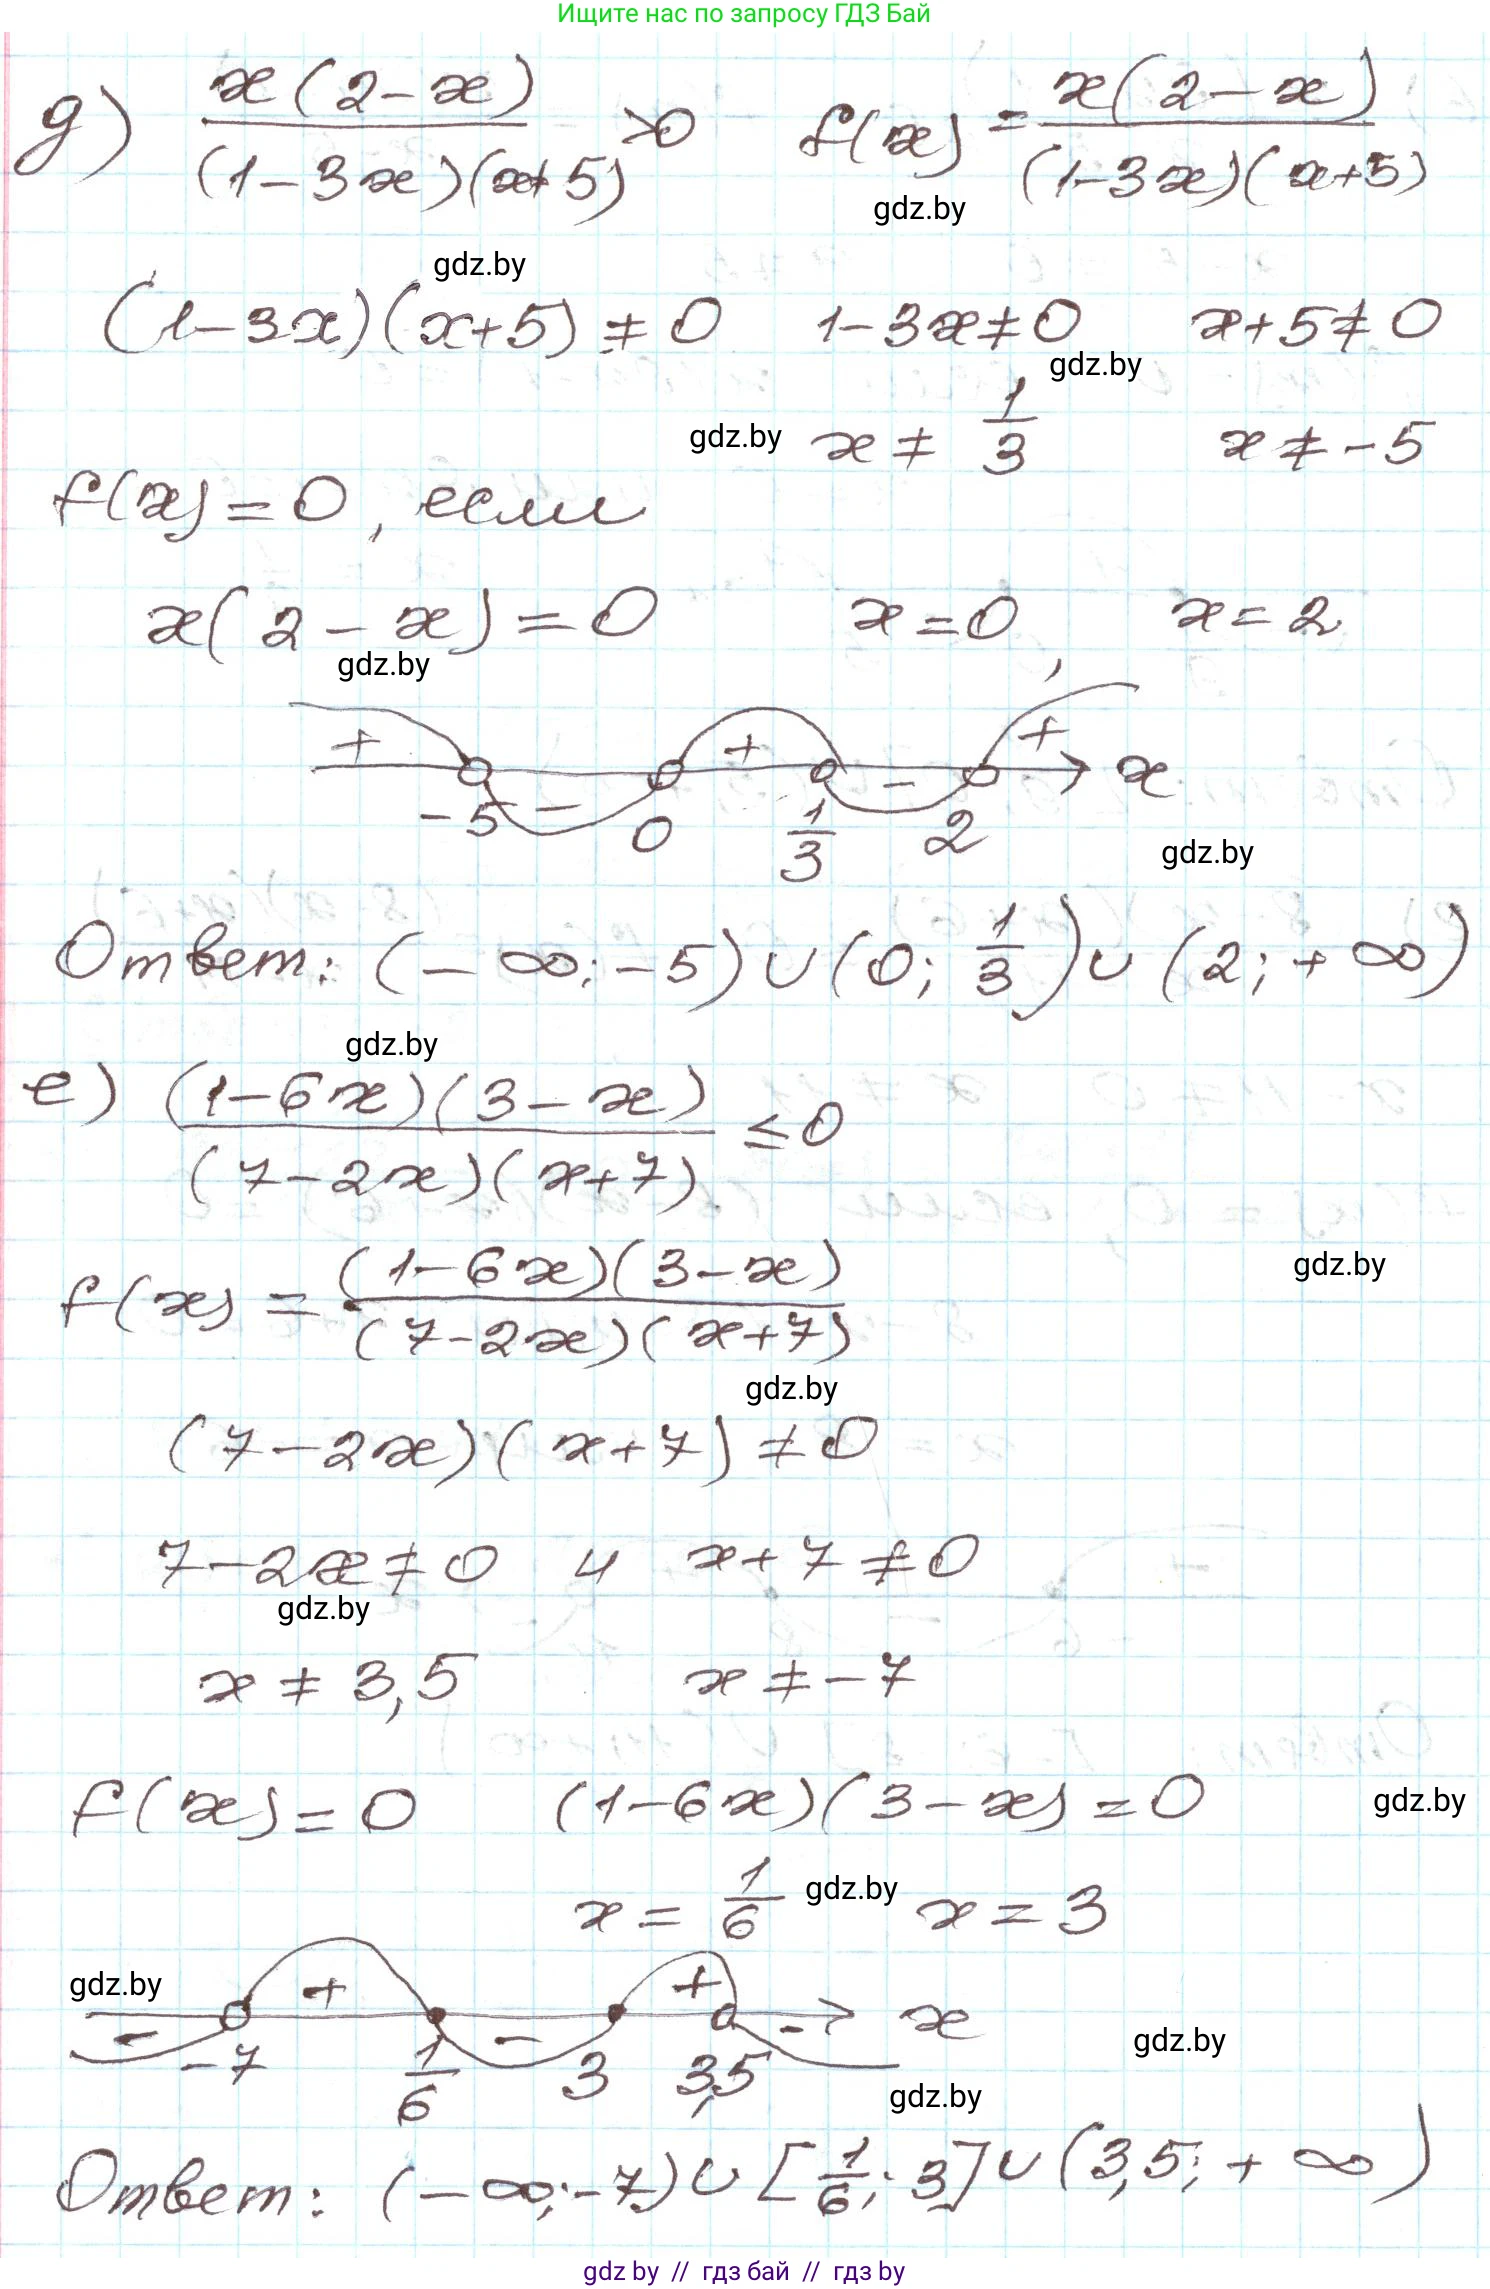 Ищите нас по запросу ГДЗ Бай
д) x(2-x)/((1-3x)(x+5)) >0 f(x) = x(2-x)/((1-3x)(x+5))
gdz.by
gdz.by
(1-3x)(x+5) ≠ 0 1-3x≠0 x+5≠0
gdz.by
gdz.by x ≠ 1/3 x ≠ -5
f(x)=0, если
x(2-x)=0 x=0, x=2
gdz.by
+ - + - + x
-5 0 1/3 2
gdz.by
Ответ: (-∞;-5)∪(0; 1/3)∪(2;+∞)
gdz.by
е) (1-6x)(3-x)/((7-2x)(x+7)) ≤0
f(x) = (1-6x)(3-x)/((7-2x)(x+7))
gdz.by
gdz.by
(7-2x)(x+7) ≠0
7-2x≠0 и x+7≠0
gdz.by
x ≠ 3,5 x ≠ -7
f(x)=0 (1-6x)(3-x)=0
gdz.by
x = 1/6 gdz.by x = 3
gdz.by
- + - + - x
-7 1/6 3 3,5
gdz.by
gdz.by
Ответ: (-∞;-7)∪[1/6; 3]∪(3,5;+∞)
gdz by // гдз бай // гдз by